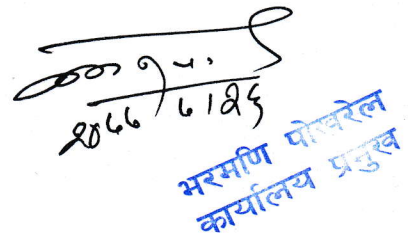 २०७७।७।२६
भरमणि पोखरेल
कार्यालय प्रमुख